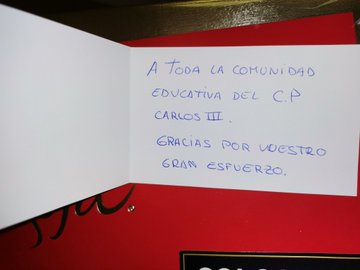 A TODA LA COMUNIDAD
EDUCATIVA DEL C.P
CARLOS III.
GRACIAS POR VUESTRO
GRAN ESFUERZO.